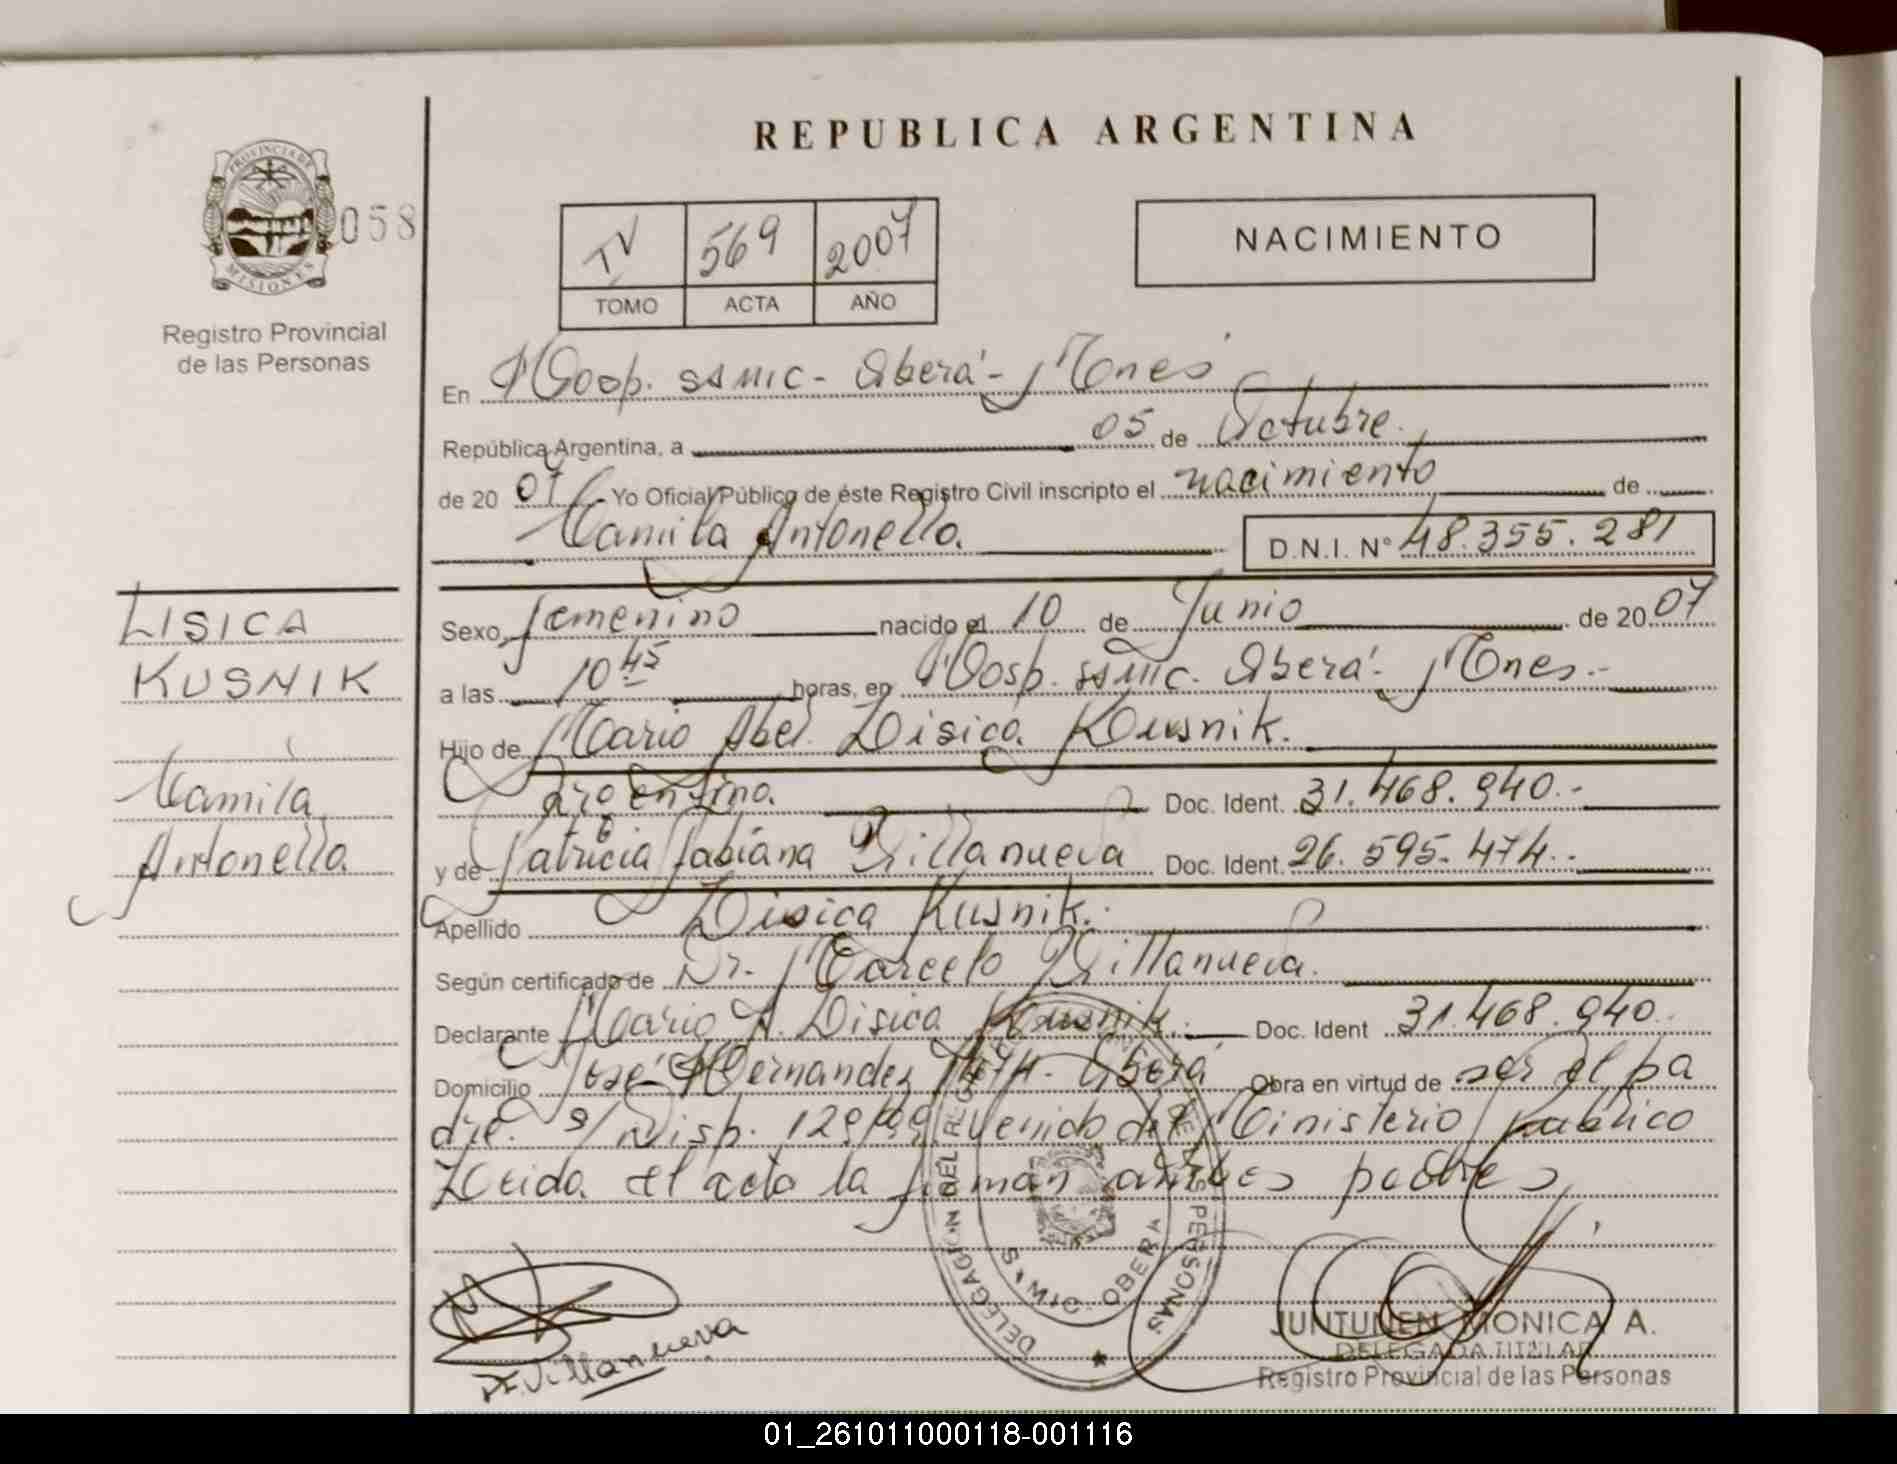 REPUBLICA ARGENTINA
PROVINCIA DE
MISIONES
058
Registro Provincial
de las Personas
TV 569 2007
TOMO ACTA AÑO
NACIMIENTO
En Hosp. SAMIC - Oberá - Mnes
República Argentina, a 05 de Octubre.
de 20 07 Yo Oficial Público de éste Registro Civil inscripto el nacimiento de
Camila Antonella. D.N.I. N° 48.355.281
LISICA
KUSNIK
Camila
Antonella
Sexo femenino nacido el 10 de Junio de 20 07
a las 10 45 horas, en Hosp. SAMIC. Oberá - Mnes.-
Hijo de Mario Abel Lisica Kusnik.
argentino. Doc. Ident. 31.468.940.-
y de Patricia Fabiana Villanueva Doc. Ident. 26.595.474.-
Apellido Lisica Kusnik.
Según certificado de Dr. Marcelo Villanueva.
Declarante Mario A. Lisica Kusnik. Doc. Ident 31.468.940.
Domicilio José Hernandez Oberá Obra en virtud de ser el pa
dre. s/ Disp. del Ministerio Publico
Leida el acta la firman ambos padres
DELEGACION DEL PERSONAS
OBERA
P. Villanueva
JUNTUNEN MONICA A.
DELEGADA TITULAR
Registro Provincial de las Personas
01_261011000118-001116